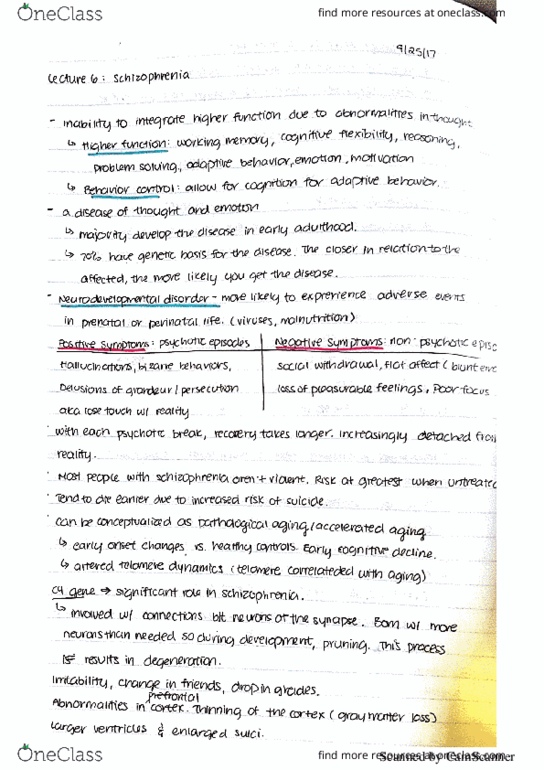 OneClass
find more resources at oneclass.com
9/25/17
Lecture 6: Schizophrenia
- inability to integrate higher function due to abnormalities in thought
↳ Higher function: working memory, cognitive flexibility, reasoning,
problem solving, adaptive behavior, emotion, motivation
↳ Behavior control: allow for cognition for adaptive behavior.
- a disease of thought and emotion
↳ majority develop the disease in early adulthood.
↳ 70% have genetic basis for the disease. The closer in relation to the
affected, the more likely you get the disease.
- Neurodevelopmental disorder - more likely to experience adverse events
in prenatal or perinatal life. (viruses, malnutrition)
Positive symptoms: psychotic episodes
Hallucinations, bizane behaviors,
Delusions of grandeur / persecution
aka lose touch w/ reality
Negative symptoms: non-psychotic episo
social withdrawal, flat affect (blunt emo
loss of pleasurable feelings, Poor focus
· with each psychotic break, recovery takes longer. increasingly detached from
reality.
· Most people with schizophrenia aren't violent. Risk at greatest when untreated
· Tend to die earlier due to increased risk of suicide.
· can be conceptualized as pathological aging/accelerated aging
↳ early onset changes vs. healthy controls. Early cognitive decline.
↳ altered telomere dynamics (telomere correlateded with aging)
C4 gene → significant role in schizophrenia.
↳ involved w/ connections b/t neurons or the synapse. Born w/ more
neurons than needed so during development, pruning. This process
results in degeneration.
Irritability, change in friends, drop in grades.
Abnormalities in prefrontal cortex. Thinning of the cortex (gray matter loss)
Larger ventricles & enlarged sulci.
OneClass
find more resources at oneclass.com
Scanned by CamScanner